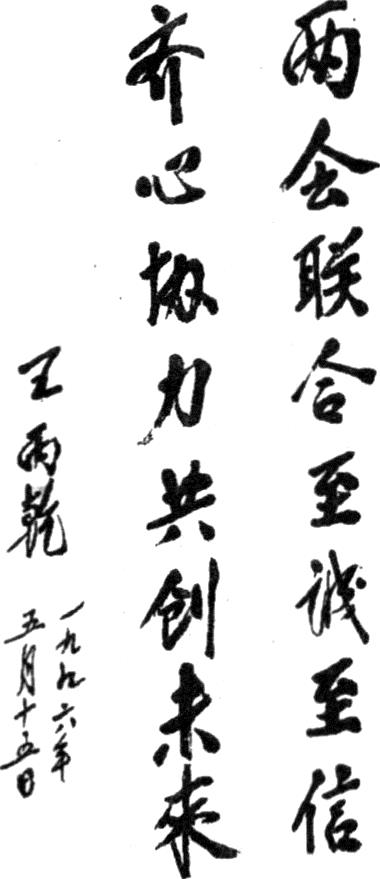 两会联合至诚至信
齐心协力共创未来
王丙乾
一九九六年
五月十五日